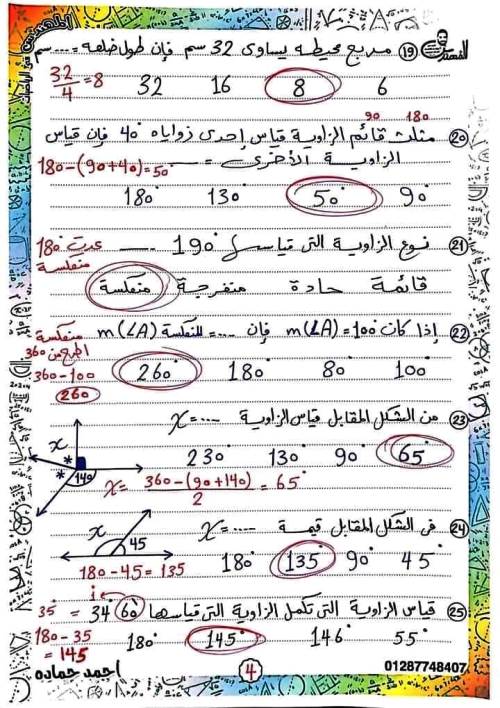 المهندس
فى الرياضيات
(19) مربع محيطه يساوى 32 سم فإن طول ضلعه = .... سم
6 8 16 32
32/4 = 8
90 180
(20) مثلث قائم الزاوية قياس إحدى زواياه 40° فإن قياس
الزاوية الأخرى = ....
180-(90+40)=50°
90° 50° 130° 180°
(21) نوع الزاوية التى قياسها 190° ....
عدت 180°
منعكسة
قائمة حادة منفرجة منعكسة
(22) إذا كان m(∠A)=100° فإن .... = m(∠A) المنعكسة
منعكسة
اطرح من 360
360-100
260
100° 80° 180° 260°
(23) من الشكل المقابل قياس الزاوية x = ....
65° 90° 130° 230°
x * * 140
x = 360-(90+140)/2 = 65°
(24) فى الشكل المقابل قيمة x = ....
45° 90° 135 180°
x 45
180-45=135
(25) قياس الزاوية التى تكمل الزاوية التى قياسها 34° 60' = 35°
55° 146° 145° 180°
180-35
=145
احمد حماده
4
01287748407